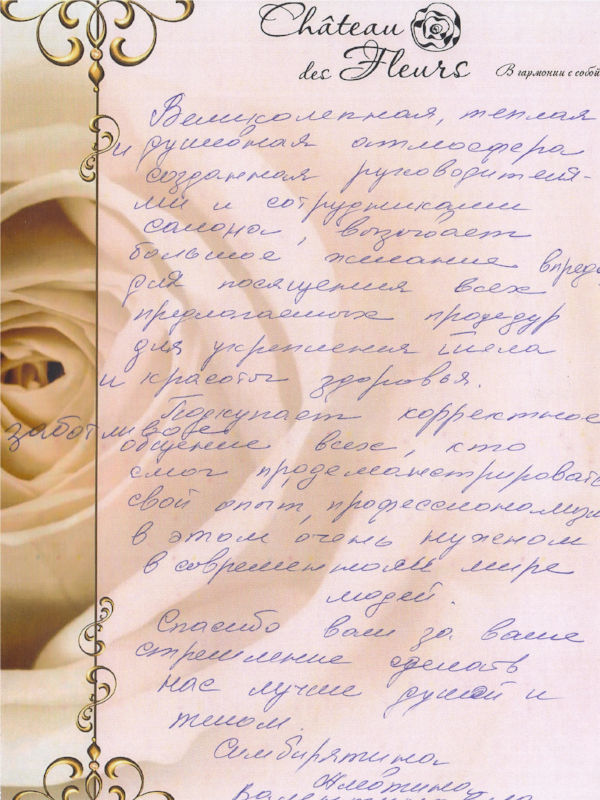 Château
des Fleurs
В гармонии с собой
Великолепная, теплая
и душевная атмосфера
созданная руководителя-
ми и сотрудниками
салона, возбуждает
большое желание впредь
для посящения всех
предлагаемых процедур
для укрепления тела
и красоты здоровья.
Подкупает корректное
заботливое
общение всех, кто
смог продемонстрировать
свой опыт, профессионализм
в этом очень нужном
в современном мире
людей.
Спасибо вам за ваше
стремление сделать
нас лучше душой и
телом.
Симбирятина